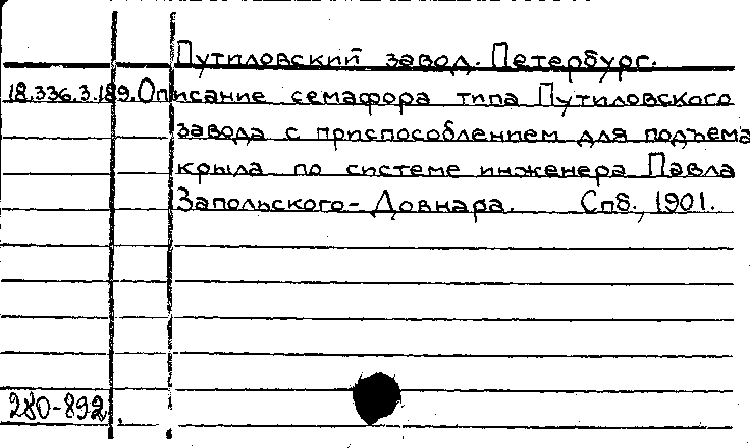 Путиловский завод. Петербург.
18.336.3.189. Описание семафора типа Путиловского
завода с приспособлением для подъема
крыла по системе инженера Павла
Запольского-Довнара. Спб., 1901.
280-892